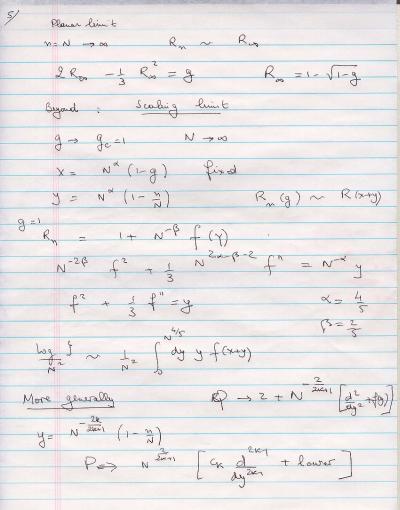 5/
Planar limit
n = N → ∞ R_n ~ R_∞
2 R_∞ - 1/3 R_∞^2 = g R_∞ = 1 - √(1-g)
Beyond : Scaling limit
g → g_c = 1 N → ∞
x = N^α (1-g) fixed
y = N^α (1 - n/N) R_n(g) ~ R(x+y)
g=1
R_n = 1 + N^{-β} f(y)
N^{-2β} f^2 + 1/3 N^{2α-β-2} f'' = N^{-α} y
f^2 + 1/3 f'' = y α = 4/5
β = 2/5
log ξ/N^2 ~ 1/N^2 ∫_0^{N^{4/5}} dy y f(x+y)
More generally Q → 2 + N^{-2/(2k+1)} [d^2/dy^2 + f(y)]
y = N^{-2k/(2k+1)} (1 - n/N)
P ⇒ N^{2/(2k+1)} [c_k d^{2k-1}/dy^{2k-1} + lower]